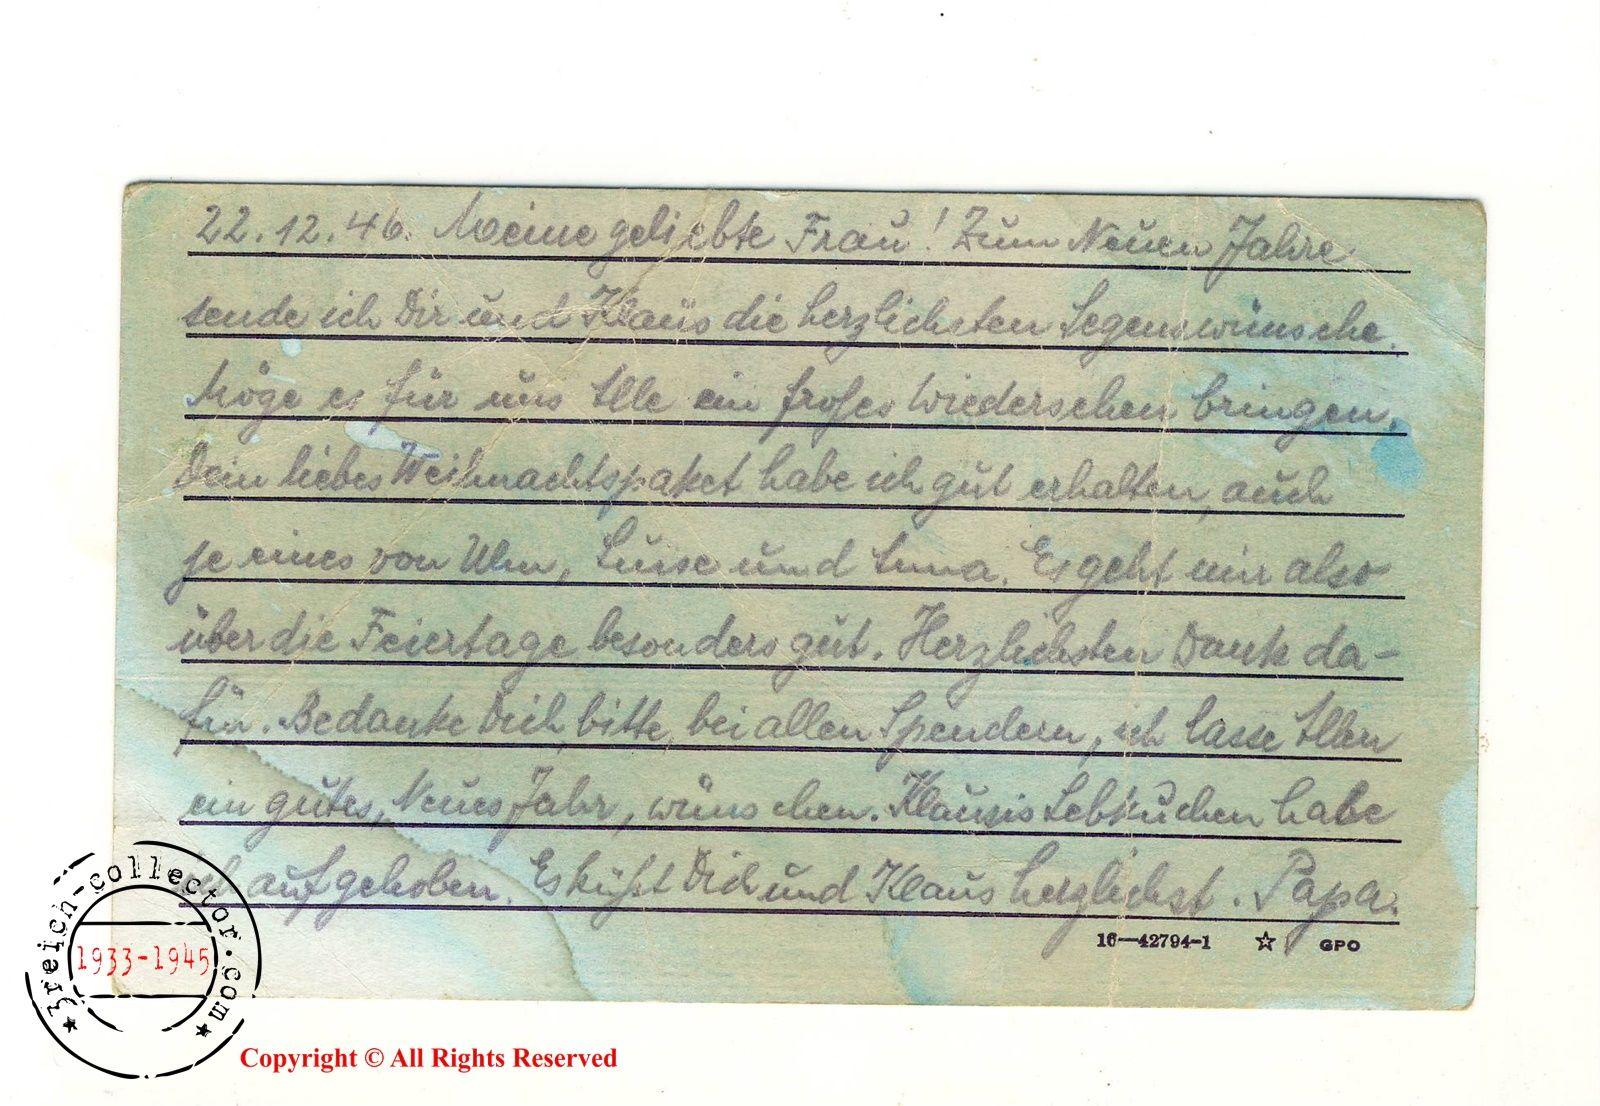 22.12.46. Meine geliebte Frau! Zum Neuen Jahre
sende ich Dir und Klaus die herzlichsten Segenswünsche.
Möge es für uns Alle ein frohes Wiedersehen bringen.
Dein liebes Weihnachtspaket habe ich gut erhalten, auch
je eines von Ulm, Luise und Anna. Es geht mir also
über die Feiertage besonders gut. Herzlichsten Dank da-
für. Bedanke Dich, bitte, bei allen Spendern, ich lasse Allen
ein gutes, Neues Jahr, wünschen. Klausis Lebkuchen habe
ich aufgehoben. Es küßt Dich und Klaus herzlichst. Papa.
16—42794-1 ☆ GPO
★ 3reich-collector.com ★
1933-1945
Copyright © All Rights Reserved